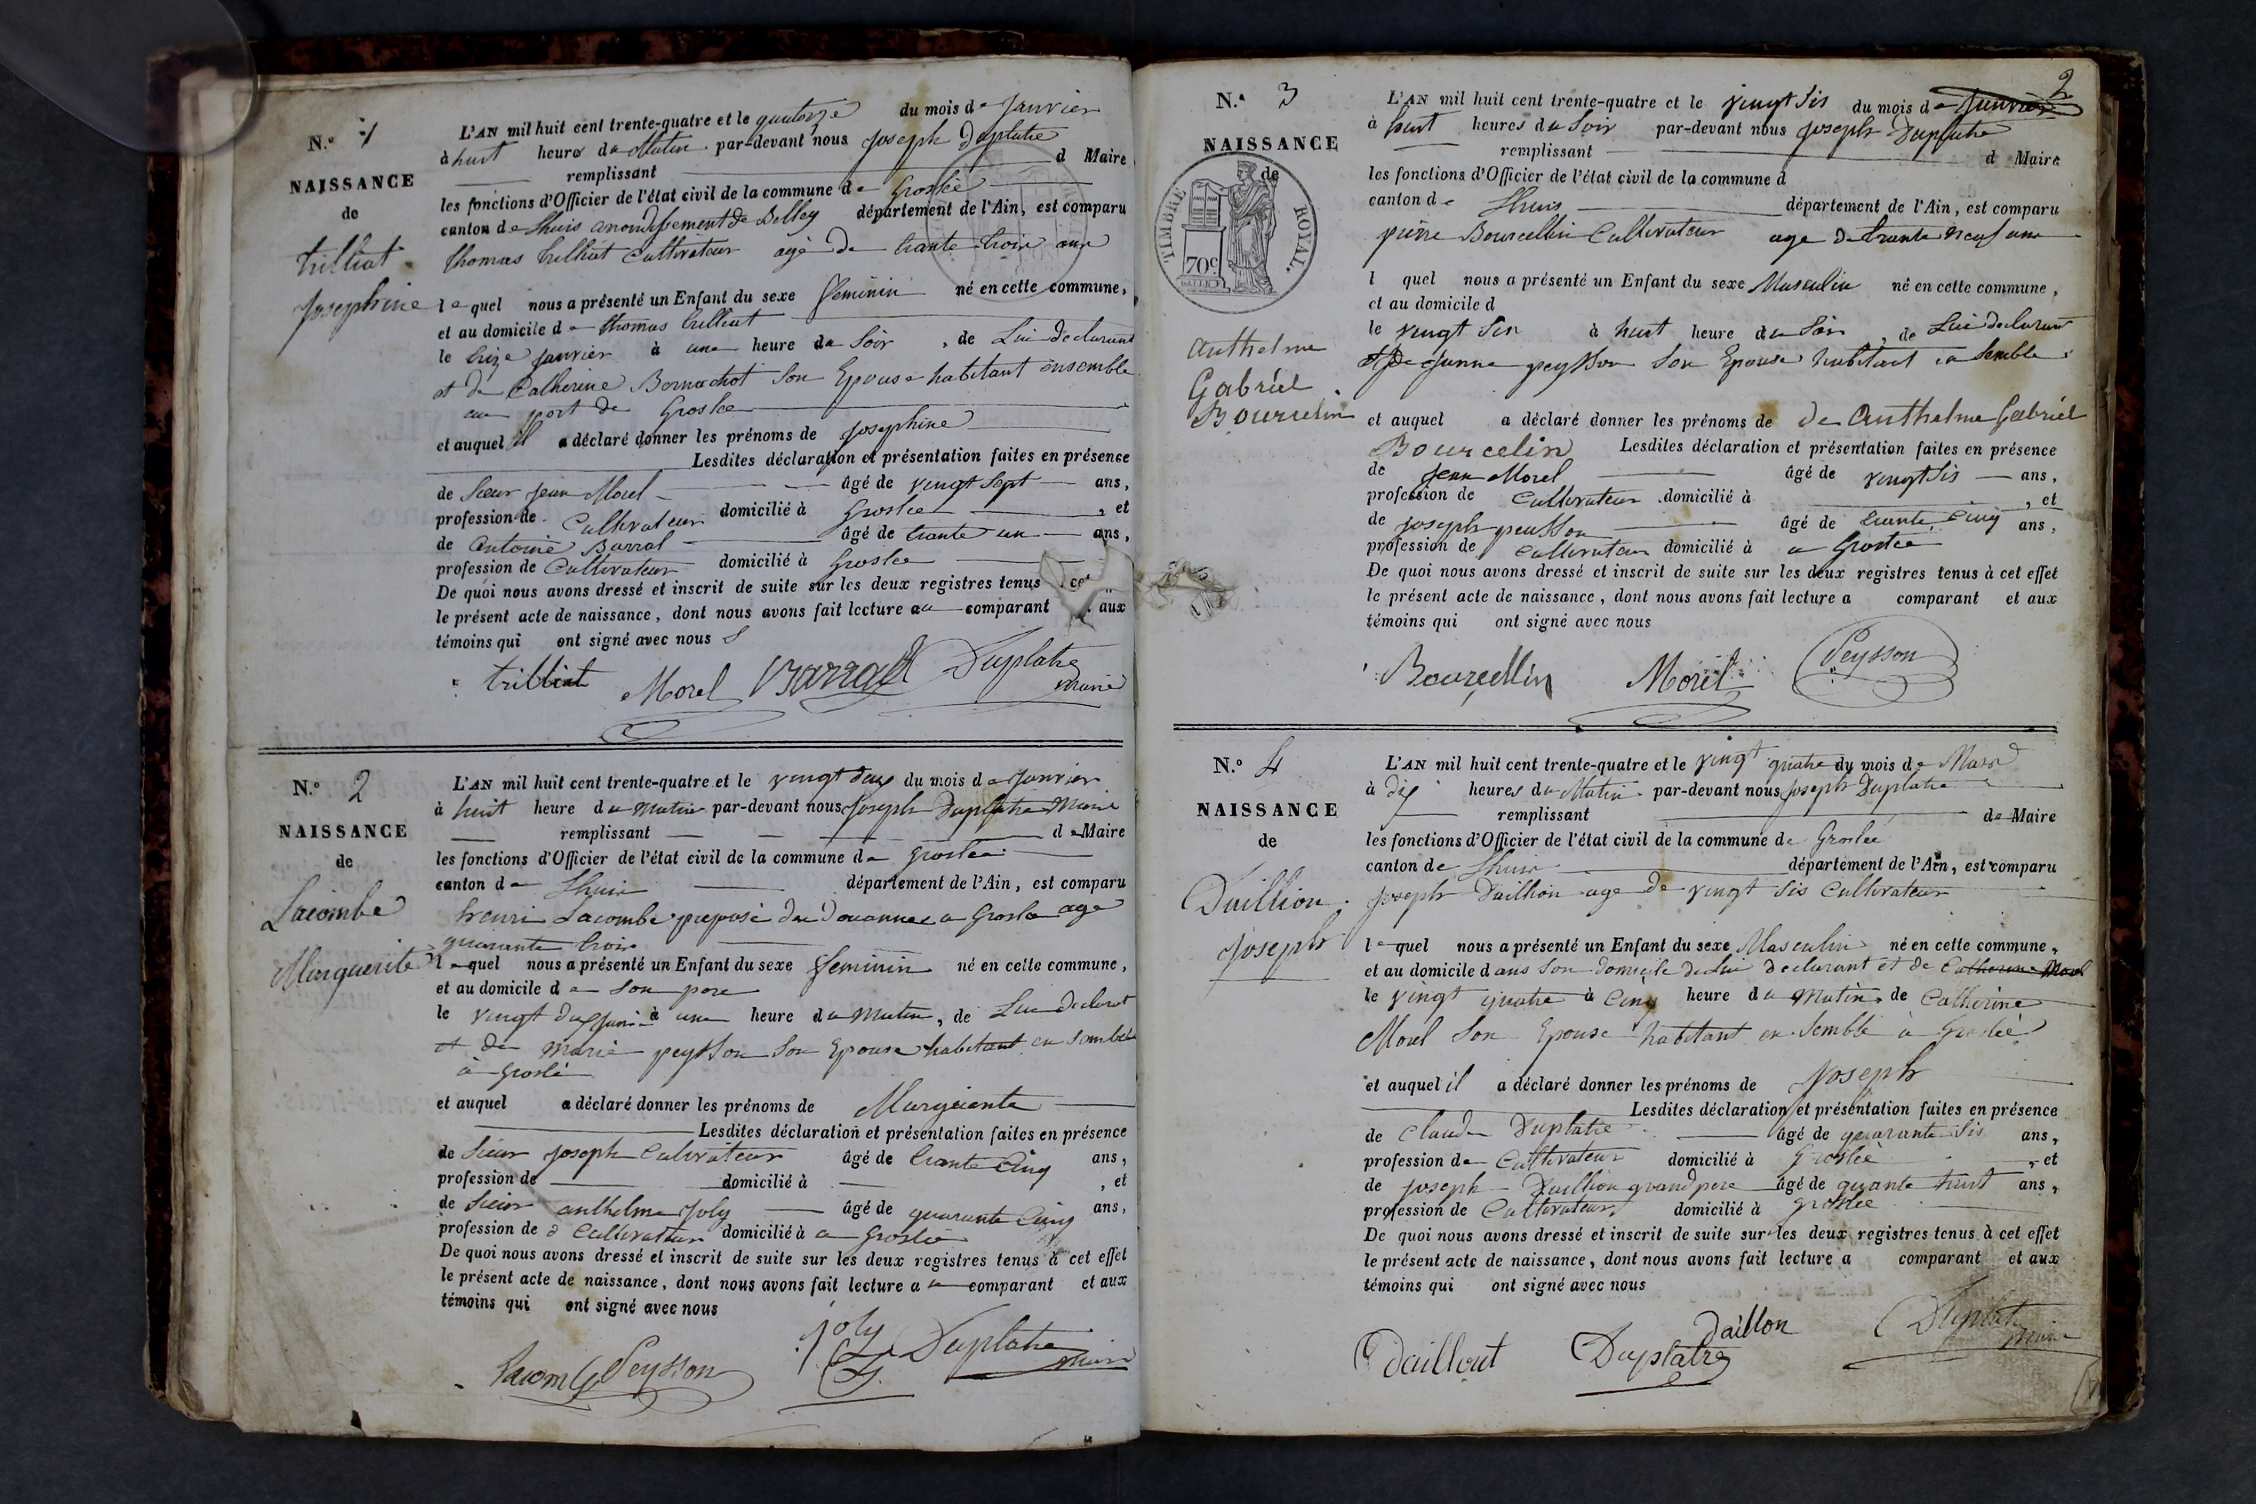 N.° 1
NAISSANCE
de
trilliat
Josephine
L'AN mil huit cent trente-quatre et le quatorze du mois de Janvier
à huit heures du Matin par-devant nous Joseph Duplatre
remplissant d Maire
les fonctions d'Officier de l'état civil de la commune de Groslée
canton de Lhuis arrondissement de Belley département de l'Ain, est comparu
thomas trilliat Cultivateur agé de trante trois ans
lequel nous a présenté un Enfant du sexe feminin né en cette commune,
et au domicile de thomas trilliat
le treize janvier à une heure du Soir, de Lui declarant
et de Catherine Bornochot Son Epouse habitant ensemble
au port de Groslee
et auquel il a déclaré donner les prénoms de Josephine
Lesdites déclaration et présentation faites en présence
de Sieur Jean Morel âgé de vingt Sept ans,
profession de Cultivateur domicilié à Groslee, et
de Antoine Barral âgé de trante un ans,
profession de Cultivateur domicilié à Groslee
De quoi nous avons dressé et inscrit de suite sur les deux registres tenus
le présent acte de naissance, dont nous avons fait lecture au comparant aux
témoins qui ont signé avec nous
trilliat Morel Barral Duplatre
maire
N.° 2
NAISSANCE
de
Lacombe
Marguerite
L'AN mil huit cent trente-quatre et le vingt deux du mois de Janvier
à huit heure du matin par-devant nous Joseph Duplatre Maire
remplissant de Maire
les fonctions d'Officier de l'état civil de la commune de Groslee
canton de Lhuis département de l'Ain, est comparu
henri Lacombe preposé des Douannes a Groslee age
quarante trois
lequel nous a présenté un Enfant du sexe feminin né en cette commune,
et au domicile de Son pere
le vingt deux à une heure du Matin, de Lui declarant
et de Marie peysson Son Epouse habitant en semble
à Groslé
et auquel a déclaré donner les prénoms de
Lesdites déclaration et présentation faites en présence
de Sieur joseph Cultivateur âgé de trante Cinq ans,
profession de domicilié à, et
de Sieur anthelme joly âgé de quarante Cinq ans,
profession de Cultivateur domicilié à a Groslee
De quoi nous avons dressé et inscrit de suite sur les deux registres tenus à cet effet
le présent acte de naissance, dont nous avons fait lecture au comparant et aux
témoins qui ont signé avec nous
Lacombe Peysson joly Duplatre
maire
2
N.° 3
NAISSANCE
de
TIMBRE ROYAL.
70c
Anthelme
Gabriel
Bourcelin
L'AN mil huit cent trente-quatre et le vingt Sis du mois de Janvier
à huit heures du Soir par-devant nous Joseph Duplatre
remplissant d Maire
les fonctions d'Officier de l'état civil de la commune d
canton de Lhuis département de l'Ain, est comparu
pierre Bourcellin Cultivateur age de trante neuf ans
l quel nous a présenté un Enfant du sexe Masculin né en cette commune,
et au domicile d
le vingt Sis à huit heure du Soir, de Lui declarant
et de Janne peysson Son Epouse habitant en Semble
et auquel a déclaré donner les prénoms de de Anthelme Gabriel
Bourcelin Lesdites déclaration et présentation faites en présence
de Jean Morel âgé de vingt Sis ans,
profession de Cultivateur domicilié à, et
de joseph peysson âgé de trante Cinq ans,
profession de Cultivateur domicilié à a Groslee
De quoi nous avons dressé et inscrit de suite sur les deux registres tenus à cet effet
le présent acte de naissance, dont nous avons fait lecture a comparant et aux
témoins qui ont signé avec nous
Bourcellin Morel Peysson
N.° 4
NAISSANCE
de
Daillion
Joseph
L'AN mil huit cent trente-quatre et le vingt quatre du mois de Mars
à dix heures du Matin par-devant nous Joseph Duplatre
remplissant de Maire
les fonctions d'Officier de l'état civil de la commune de Groslée
canton de Lhuis département de l'Ain, est comparu
joseph Daillion age de vingt Sis Cultivateur
lequel nous a présenté un Enfant du sexe Masculin né en cette commune,
et au domicile dans Son domicile de Lui declarant et de Catherine Morel
le vingt quatre à Cinq heure du Matin, de Catherine
Morel Son Epouse habitant en Semble à Groslée
et auquel il a déclaré donner les prénoms de Joseph
Lesdites déclaration et présentation faites en présence
de Claude Duplatre âgé de quarante Sis ans,
profession de Cultivateur domicilié à Groslée, et
de joseph Daillion grand pere âgé de huit ans,
profession de Cultivateur domicilié à Groslee
De quoi nous avons dressé et inscrit de suite sur les deux registres tenus à cet effet
le présent acte de naissance, dont nous avons fait lecture a comparant et aux
témoins qui ont signé avec nous
daillout Duplatre daillon Duplatre
maire